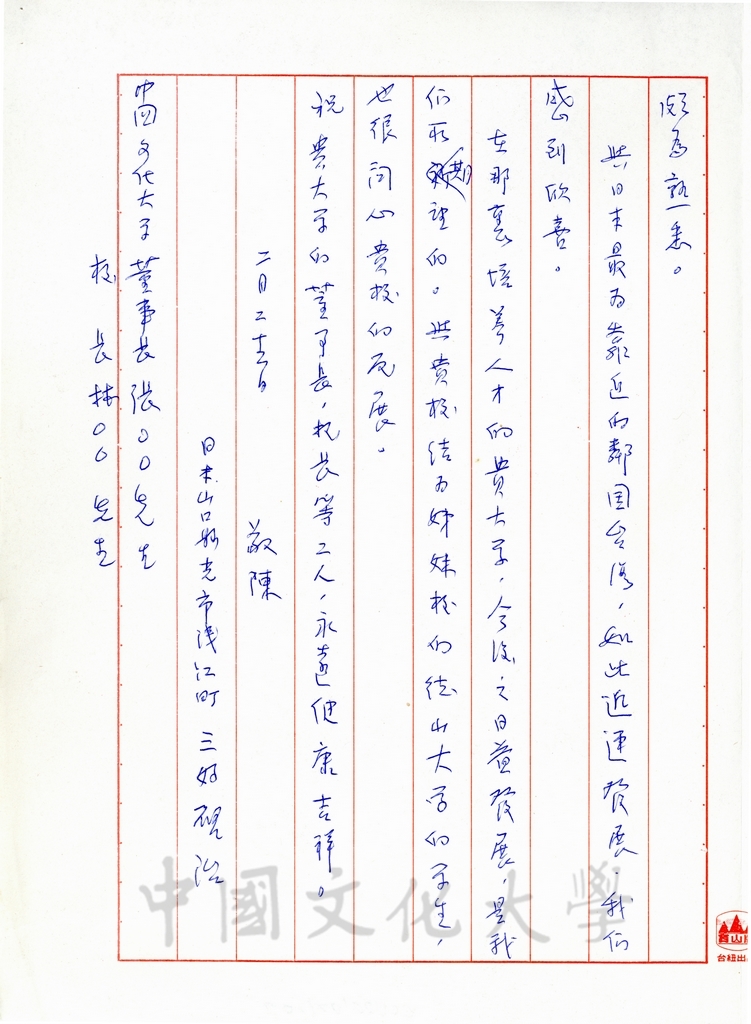 頗為熟悉。
與日本最為靠近的鄰国台灣，如此迅速發展，我们
感到欣喜。
在那裏培养人才的貴大学，今後之日益發展，是我
们所期望的。與貴校结为姊妹校的德山大学的学生，
也很関心貴校的发展。
祝貴大学的董事長，校長等工人，永遠健康吉祥。
二月二十三日
敬陳
日本山口縣光市浅江町 三好 治
中国文化大学董事長張○○先生
校長林○○先生
中國文化大學
台紐出